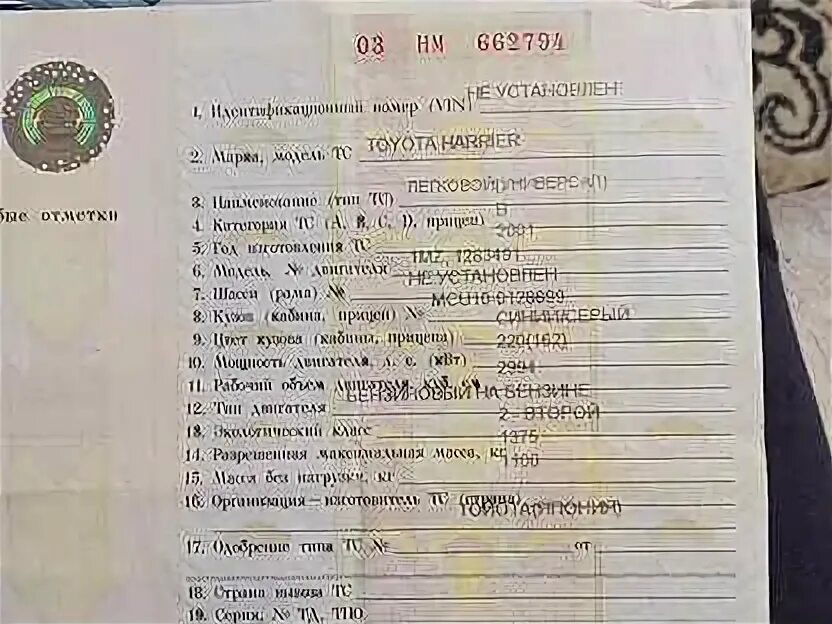 03 НМ 662794
1. Идентификационный номер (VIN) НЕ УСТАНОВЛЕН
2. Марка, модель ТС TOYOTA HARRIER
3. Наименование (тип ТС) ЛЕГКОВОЙ УНИВЕРСАЛ
ые отметки
4. Категория ТС (А, В, С, D, прицеп) В
5. Год изготовления ТС 2001
6. Модель, № двигателя 1MZ,
7. Шасси (рама) № НЕ УСТАНОВЛЕН
8. Кузов (кабина, прицеп) №
9. Цвет кузова (кабины, прицепа) СИНИЙ/СЕРЫЙ
10. Мощность двигателя, л. с. (кВт) 220(162)
11. Рабочий объем двигателя, куб. см 2994
12. Тип двигателя БЕНЗИНОВЫЙ НА БЕНЗИНЕ
13. Экологический класс 2- ВТОРОЙ
14. Разрешенная максимальная масса, кг
15. Масса без нагрузки, кг
16. Организация–изготовитель ТС (страна) ТОЙОТА(ЯПОНИЯ)
17. Одобрение типа ТС № от
18. Страна вывоза ТС
19. Серия, № ТД, ТПО